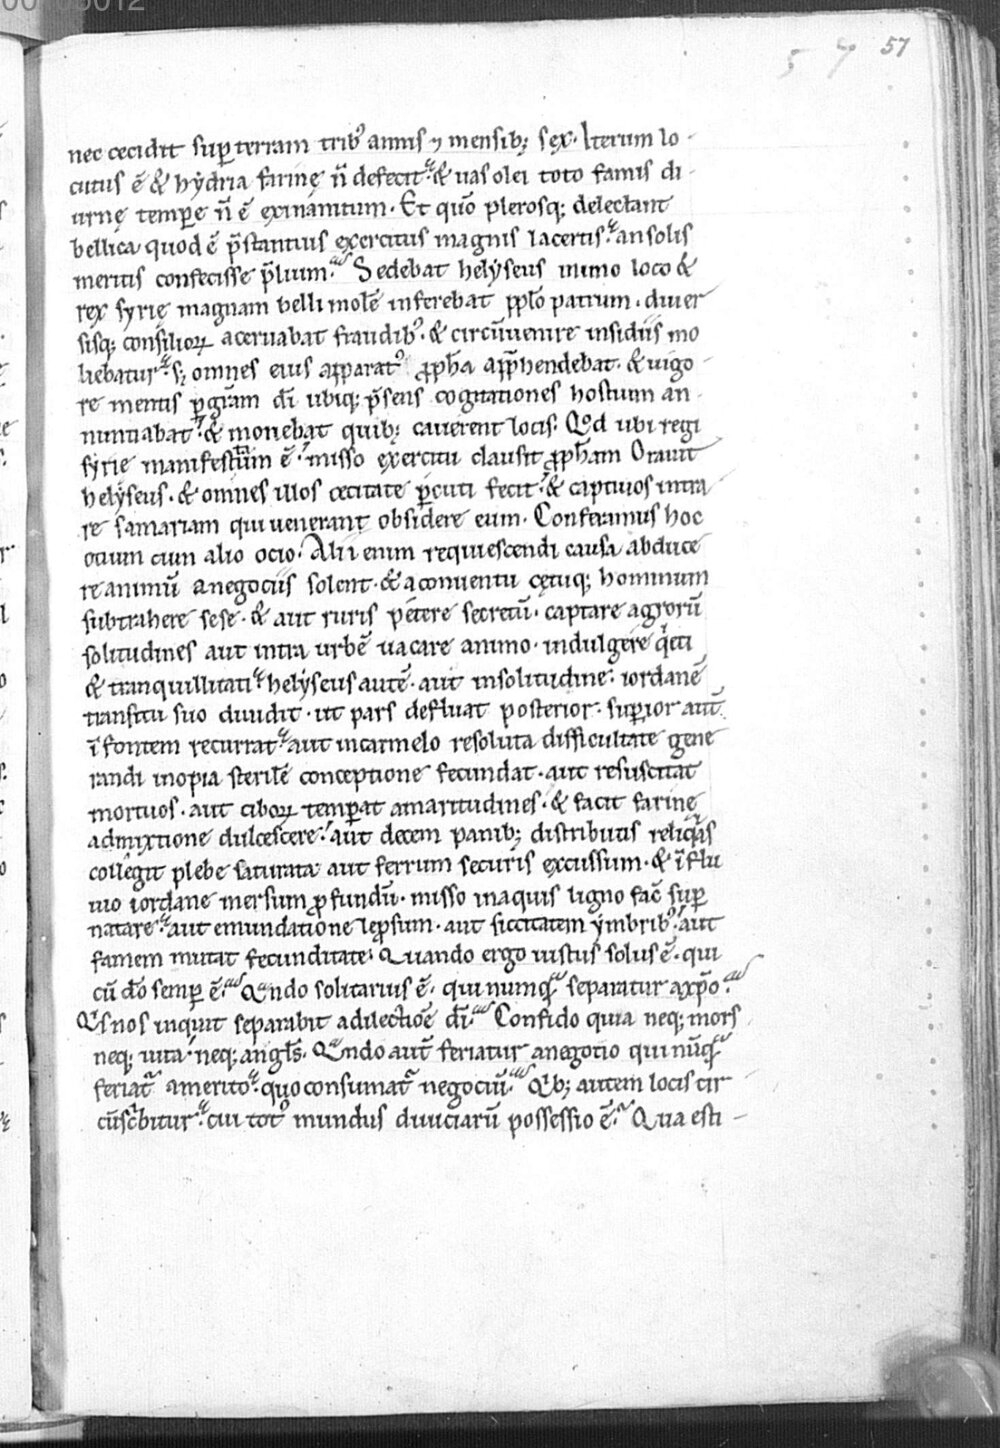 00005012
5 7 57
nec cecidit sup̄ terram trib᷒ annis ⁊ mensib; sex. Iterum lo-
cutus ē & hydria farinę n̄ defecit. & uas olei toto famis di-
urnę temp̄e n̄ ē exinanitum. Et quō plerosq; delectant
bellica quod ē p̄stantius exercitus magnis lacertis. an solis
meritis confecisse p̄lium. Sedebat helyseus in imo loco &
rex syrię magnam belli molē inferebat pp̄lo patrum. diuer
sisq; consilioꝝ aceruabat fraudib᷒. & circūuenire insidiis mo
liebatur. s; omnes eius apparat᷒ ꝓph̄a app̄hendebat. & uigo-
re mentis p̄ grām dī ubiq; p̄sens cogitationes hostium an-
nuntiabat. & monebat quib; cauerent locis. Qd ubi regi
syrie manifestum ē. misso exercitu clausit ꝓph̄am Orauit
helyseus. & omnes illos cecitate p̄cuti fecit. & captiuos intra
re samariam qui uenerant obsidere eum. Conferamus hoc
otium cum alio ocio. Alii enim requiescendi causa abduce
re animū a negociis solent. & a conuentu cętuq; hominum
subtrahere sese. & aut ruris petere secretū. captare agrorū
solitudines aut intra urbē uacare animo. indulgere qͥeti
& tranquillitati. helyseus autē. aut in solitudine. iordanē
transitu suo diuidit. ut pars defluat posterior. sup̄ior aut̄
ī fontem recurrat. aut in carmelo resoluta difficultate gene
randi inopia sterilē conceptione fecundat. aut resuscitat
mortuos. aut ciboꝝ temp̄at amaritudines. & facit farinę
admixtione dulcescere. aut decem panib; distributis reliqͥas
collegit plebe saturata aut ferrum securis excussum. & ī flu
uio iordane mersum ꝓfundū. misso in aquis ligno fac̄ sup̄
natare. aut emundatione lep̄sum. aut siccitatem ymbrib᷒. aut
famem mutat fecunditate. Quando ergo iustus solus ē. qui
cū dō semp̄ ē. Qͣndo solitarius ē. qui numqͣ separatur a xp̄o.
Qͥs nos inquit separabit a dilectiōe dī. Confido quia neq; mors
neq; uita. neq; angl̄s. Qͣndo aut̄ feriatur a negotio qui nūqͣ
feriat᷑ a merito. quo consumat᷑ negociū. Qͥb; autem locis cir
cūscͥbitur. cui tot᷒ mundus diuiciarū possessio ē. Qua esti-